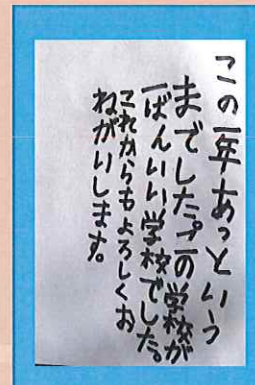 この一年あっという
までした。この学校が
一ばんいい学校でした。
これからもよろしくお
ねがいします。